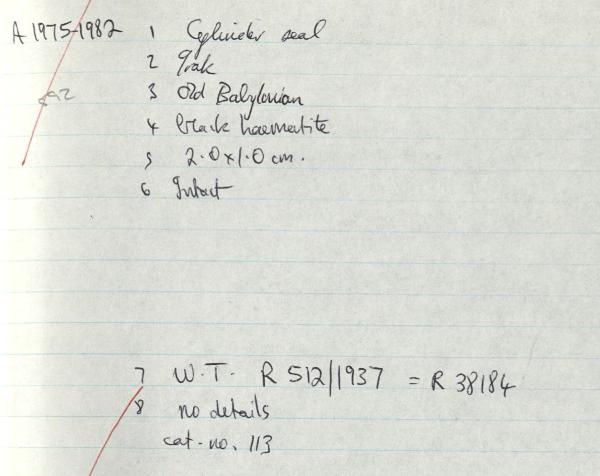 A 1975-1982 1 Cylinder seal
2 Irak
892
3 Old Babylonian
4 black haematite
5 2.0 x 1.0 cm.
6 Intact
7 W.T. R 512/1937 = R 38184
8 no details
cat-no. 113